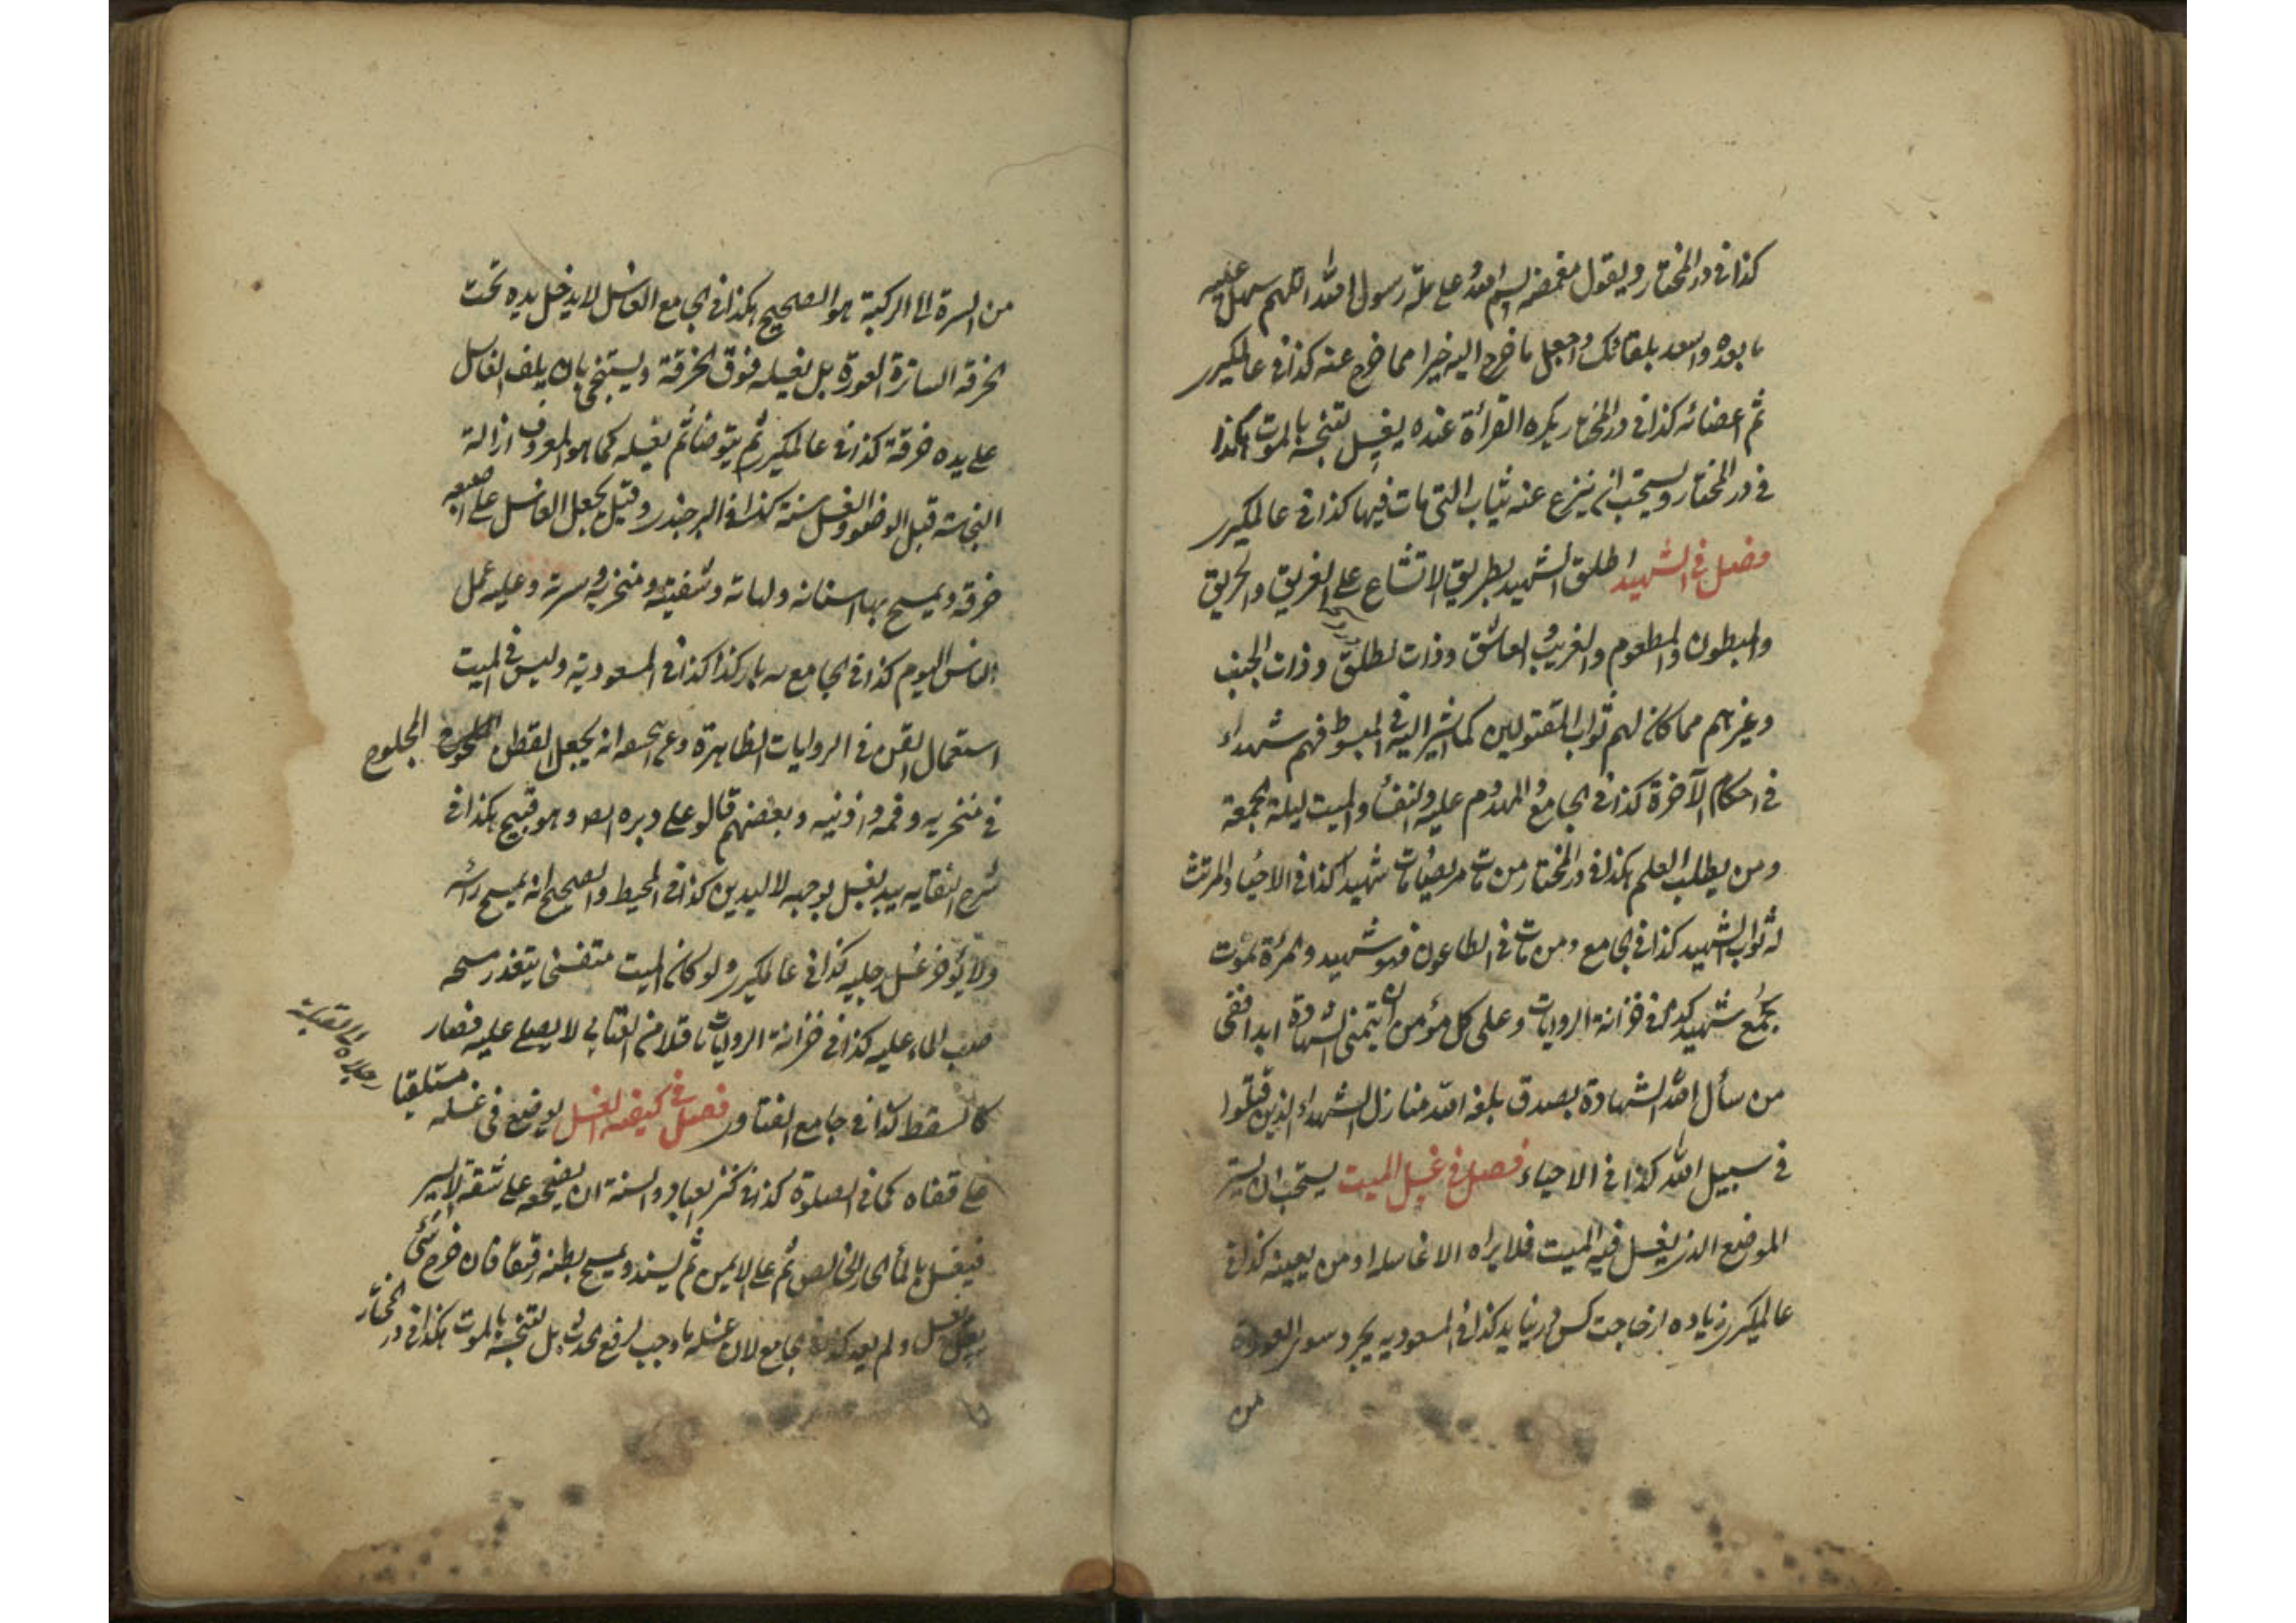 كذا فى در المختار ويقول مغمضه بسم الله وعلى ملة رسول الله اللهم سهل عليه
ما بعده واسعد بلقائك واجعل ما خرج اليه خيرا مما خرج عنه كذا فى عالمكيرى
ثم اعضائه كذا فى در المختار يكره القرأة عنده يغسل لتنجسه بالموت هكذا
فى در المختار ويستحب ان ينزع عنه ثياب التى مات فيها كذا فى عالمكيرى
فصل فى الشهيد اطلق الشهيد بطريق الاتساع على الغريق والحريق
والمبطون والمطعوم والغريب والعاشق وذات لطلق وذات الجنب
وغيرهم مما كان لهم ثواب المقتولين كما اشير اليه فى المبسوط فهم شهداء
فى احكام الآخرة كذا فى الجامع والمهدوم عليه والنفسأ والميت ليلة الجمعة
ومن يطلب العلم هكذا فى در المختار من مات مريضا مات شهيدا كذا فى الاحياء والمرتث
له ثواب الشهيد كذا فى الجامع ومن مات فى الطاعون فهو شهيد والمرأة تموت
بجمع شهيد كذا فى خزانة الروايات وعلى كل مؤمن ان يتمنى الشهادة ابدا ففى
من سأل الله الشهادة بصدق بلغه الله منازل الشهداء الذين قتلوا
فى سبيل الله كذا فى الاحياء فصل فى غسل الميت يستحب ان يستر
الموضع الذى يغسل فيه الميت فلا يراه الا غاسله او من يعينه كذا فى
عالمكيرى زياده از حاجت كس در نيايد كذا فى المسعوديه يجرد سوى العورة
من
من السرة الى الركبة هو الصحيح هكذا فى الجامع الغاسل لا يدخل يده تحت
الخرقة الساترة العورة بل يغسله فوق الخرقة ويستنجى بان يلف الغاسل
على يده خرقة كذا فى عالمكيرى ثم يتوضأ ثم يغسله كما هو المعروف ازالة
النجاسة قبل الوضوء والغسل سنة كذا فى البرجندى وقيل يجعل الغاسل على اصبعه
خرقة ويمسح بها اسنانه ولهاته وشفتيه ومنخريه وسرته وعليه عمل
الناس اليوم كذا فى الجامع سه بار كذا كذا فى المسعودية وليس فى الميت
استعمال القطن فى الروايات الظاهرة وعن ابحسعه انه يجعل القطن المحلوج
فى منخريه وفمه واذنيه وبعضهم قالو على دبره ايضا وهو قبيح هكذا فى
شرح النقايه يبدأ بغسل بوجهه لا اليدين كذا فى المحيط والصحيح انه يمسح رأسه
ولا يؤخر غسل رجليه كذا فى عالمكيرى ولو كان الميت متفسخا يتعذر مسحه
صب الماء عليه كذا فى خزانة الروايات ناقلا من العتابى لا يصلى عليه فصار
كالسقط كذا فى جامع الفتاوى فصل فى كيفية الغسل يوضع فى غسله مستلقيا
رجلاه الى القبلة
على قفاه كما فى الصلوة كذا فى كنز العباد والسنة ان يضجعه على شقه الايسر
فيغسل بالمأ الحار الخالص ثم على الايمن ثم يسند ويمسح بطنه رقيقا فان خرج شئ
يغسل ولم يعد كذا فى الجامع لان غسله ما وجب لرفع الحدث بل لتنجسه بالموت هكذا فى در المختار